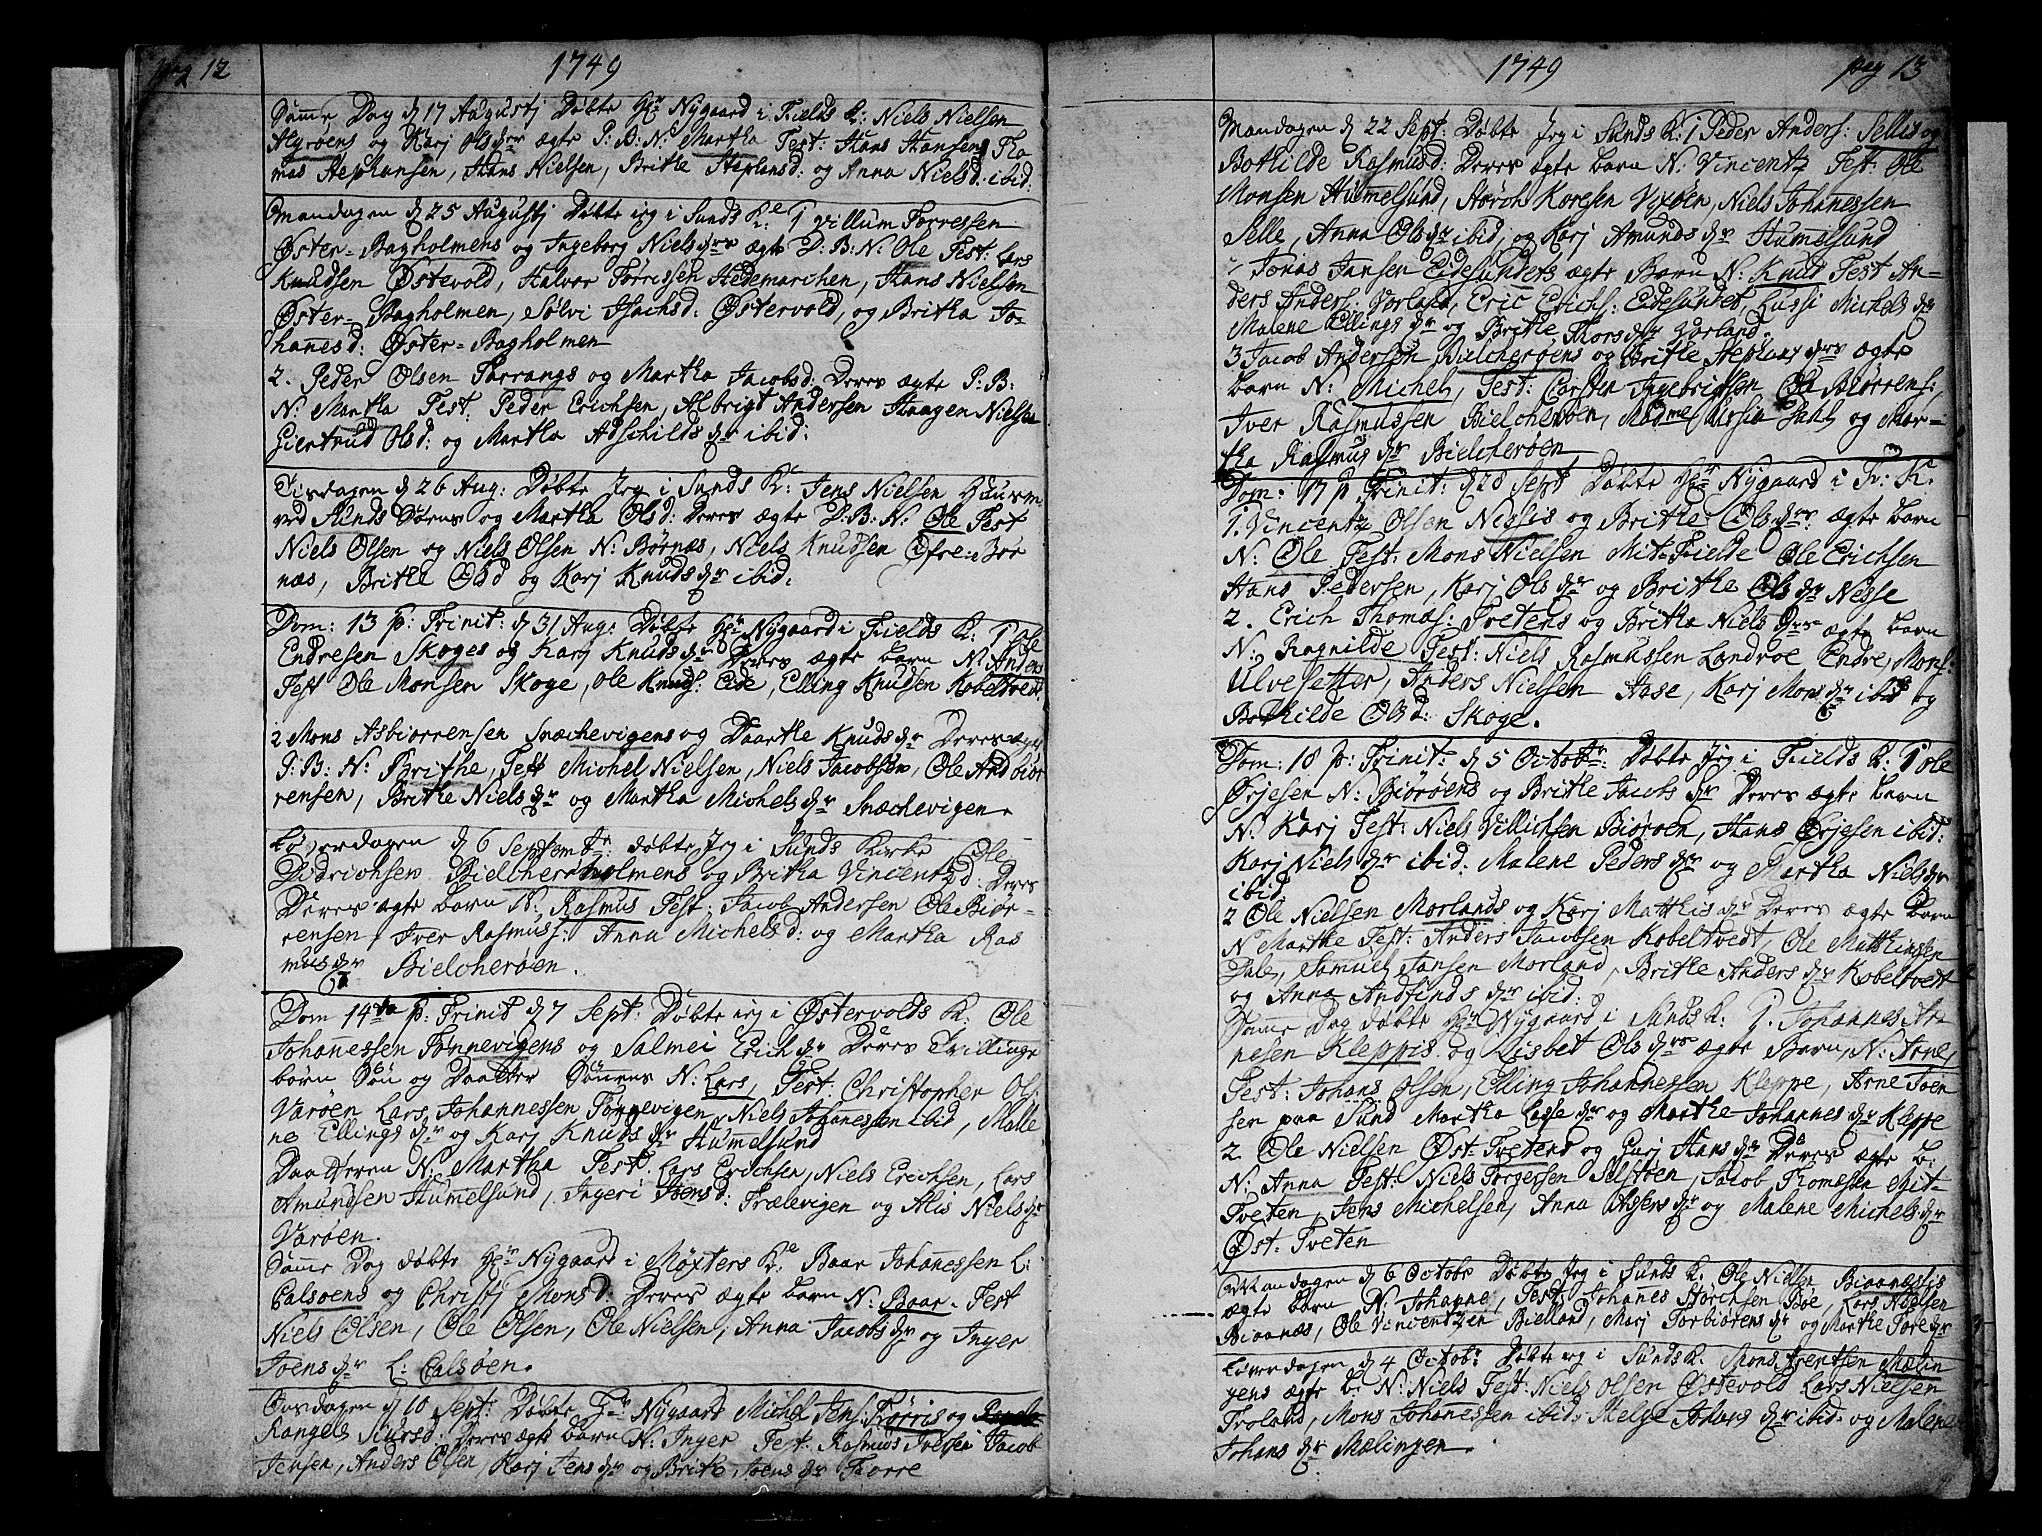 pag 12
1749
Samme Dag d 17 Augustj Døbte Hr Nygaard i Fields K: Niels Nielsen
Algrøens og Karj Olsdr ægte P: B: N: Martha Test: Hans Hansen, Tho
mas Stephansen, Hans Nielsen, Brithe Stephansd: og Anna Nielsd: ibid:
Mandagen d 25 Augustj Døbte ieg i Sunds Ke 1 Villum Torressen
Øster-Bagholmens og Ingeborg Nielsdrs ægte D: B: N: Ole Test: Lars
Knudsen Østevold, Halvor Torrissen Hedemarchen, Hans Nielsen
Øster-Bagholmen, Sølvi Isachsd: Østervold, og Britha Jo-
hanesd: Øster-Bagholmen
2. Peder Olsen Torrangs og Martha Jacobsd: Deres ægte P: B:
N: Martha Test. Peder Erichsen, Albrigt Andersen Haagen Nielsen
Giertrud Olsd: og Martha Adschildsdr ibid:
Tirsdagen d 26 Aug: Døbte Jeg i Sunds K: Jens Nielsen Huusm
ved Sunds Søens og Martha Olsd: Deres ægte D: B: N: Ole Test
Niels Olsen og Niels Olsen N: Børnæs, Niels Knudsen Øfre-Bør
næs, Brithe Olsd og Karj Knudsdr ibid:
Dom: 13 p: Trinit: d 31 Aug: Døbte Hr Nygaard i Fields K: 1 Ole
Endresen Skoges og Karj Knudsdr Deres ægte barn N: Anders
Test Ole Monsen Skoge, Ole Knuds: Eide, Elling Knudsen Kobeltvedt
2 Mons Asbiørrensen Snæchevigens og Daarthe Knudsdr Deres ægte
P: B: N: Brithe, Test Michel Nielsen, Niels Jacobsen, Ole Andbiør
rensen, Brithe Nielsdr og Martha Michelsdr Snæchevigen.
Løverdagen d 6 Septembr: døbte Jeg i Sunds Kirke Ole
Didrichsen Bielcherøholmens og Britha Vincentzd: Deres
Deres ægte barn N: Rasmus Test: Jacob Andersen Ole Biør-
rensen, Iver Rasmuss: Anna Michelsd: og Martha Ras
musdr Bielcherøen.
Dom 14de p: Trinit d 7 Sept: Døbte ieg i Østervolds K: Ole
Johannessen Tønnevigens og Salmei Erichsdr Deres Tvillinge
børn Søn og Daatter Sønnens N: Lars, Test. Christopher Ols:
Varøen Lars Johannessen Tønnevigen, Niels Johanessen ibid, Malle
ne Ellingsdr og Karj Knudsdr Humelsund
Daatteren N: Martha Test. Lars Erichsen, Niels Erichsen, Lars
Amundsen Humelsund, Ingeri Joensd: Trælevigen og Alis Nielsdr
Varøen.
Samme Dag døbte Hr Nygaard i Møxters Ke Baar Johannessen L:
Calsøens og Christj Monsd: Deres ægte barn N: Baar. Test
Niels Olsen, Ole Olsen, Ole Nielsen, Anna Jacobsdr og Inger
Joensdr L: Calsøen.
Onsdagen d 10 Sept: Døbte Hr Nygaard Michel Jens: Torris og
Rangels Siursd. Deres ægte barn N: Inger Test: Rasmus Iversen Jacob
Jensen, Anders Olsen, Karj Jensdr og Brithe Joensdr Torre
1749
pag 13
Mandagen d 22 Sept: Døbte Jeg i Sunds K: 1 Peder Anders: Sellis og
Bothilde Rasmusd: Deres ægte barn N: Vincentz Test: Ole
Monsen Humelsund, Størch Koresen Vixøen, Niels Johanessen
Selle, Anna Olsdr ibid, og Karj Amundsdr Humelsund
2 Jonas Jansen Eidesunders ægte Barn N: Knud Test An-
ders Anders: Vorland, Eric Erichs: Eidesundet, Lussi Michelsdr
Malene Ellingsdr og Brithe Thorsdr Vorland
3 Jacob Andersen Bielcherøens og Brithe Stephansdrs ægte
barn N: Michel, Test: Carsten Ingebrigtsen Ole Biørrens:
Iver Rasmussen Bielcherøen, Madme Dahl og Mar-
tha Rasmusdr Bielcherøen
Dom: 17 p: Trinit: d 28 Sept Døbte Hr Nygaard i F: K:
1. Vincentz Olsen Nessis og Brithe Olsdrs ægte barn
N: Ole Test: Mons Nielsen Mit-Fielde Ole Erichsen
Hans Pedersen, Karj Olsdr og Brithe Olsdr Nesse
2. Erich Thomas: Tvetens og Britha Nielsdrs ægte barn
N: Ragnilde Test: Niels Rasmussen Landroe Endre Mons:
Ulvesetter, Anders Nielsen Aase, Karj Monsdr ibid og
Bothilde Olsd: Skoge.
Dom: 18 p: Trinit: d 5 Octobr: Døbte Jeg i Fields K: 1 Ole
Ørjesen N: Biørøens og Brithe Jacobsdr Deres ægte barn
N: Karj Test: Niels Villichsen Biørøen, Hans Ørjesen ibid:
Karj Nielsdr ibid: Malene Pedersdr og Martha Nielsdr
ibid
2 Ole Nielsen Morlands og Karj Matthisdr Deres ægte barn
N Marthe Test: Anders Jacobsen Kobeltvedt, Ole Matthiasen
Dale, Samuel Jansen Morland, Brithe Andersdr Kobeltvedt
og Anna Andfindsdr ibid:
Samme Dag døbte Hr Nygaard i Sunds K. 1. Johannes Ar-
nesen Kleppis og Lisbet Olsdrs ægte Barn, N: Arne,
Test: Johans Olsen, Elling Johannessen Kleppe, Arne Joen
sen paa Sund Martha Lassedr og Marthe Johannesdr Kleppe
2. Ole Nielsen Øst-Tvetens og Karj Hansdr Deres ægte b.
N: Anna Test: Niels Torgersen Selstøen, Jacob Thomesen Mit-
Tveten, Jens Michelsen, Anna Assersdr og Malene Michelsdr
Øst-Tveten
Mandagen d 6 Octobr Døbte Jeg i Sunds K: Ole Nielsen Biaanæssis
ægte barn N: Johanne, Test: Johanes Størchsen Bøe, Lars Nielsen
Biaanæs, Ole Vincentzen Bielland, Marj Torbiørensdr og Marthe Toredr
Løverdagen d 4 Octobr Døbte ieg i Sunds K. Mons Arentsen Mælin
gens ægte b: N: Niels Test: Niels Olsen Østevold Lars Nielsen
Troland, Mons Johanessen ibid, Helge Johansdr ibid: og Malene
Johansdr Mælingen.